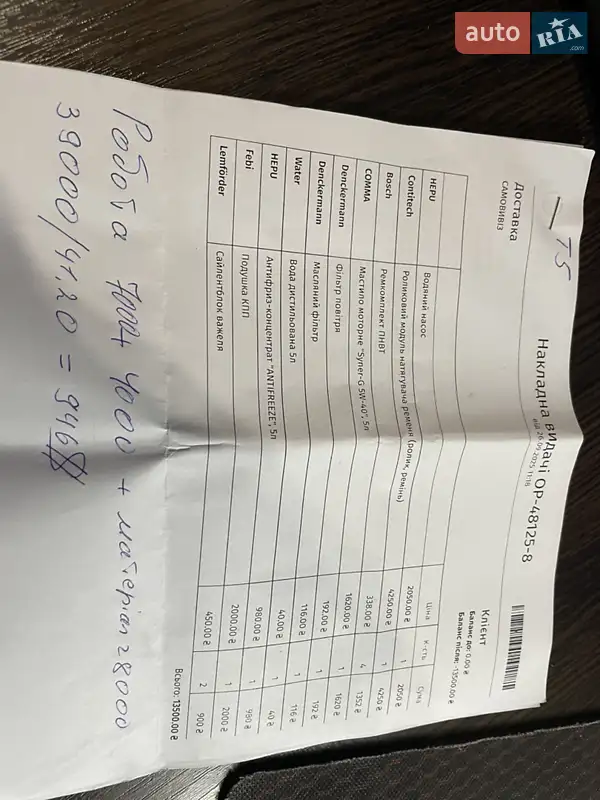 auto RIA.com
T5
Накладна видачі ОР-48125-8
від 26.09.2025 11:18
Доставка
САМОВИВІЗ
Клієнт
Баланс до: 0.00 ₴
Баланс після: -13500.00 ₴
Ціна К-сть Сума
HEPU Водяний насос 2050.00 ₴ 1 2050 ₴
Contitech Роликовий модуль натягувача ременя (ролик, ремінь) 4250.00 ₴ 1 4250 ₴
Bosch Ремкомплект ПНВТ 338.00 ₴ 4 1352 ₴
COMMA Мастило моторне "Syner-G 5W-40", 5л 1620.00 ₴ 1 1620 ₴
Denckermann Фільтр повітря 192.00 ₴ 1 192 ₴
Denckermann Масляний фільтр 116.00 ₴ 1 116 ₴
Water Вода дистильована 5л 40.00 ₴ 1 40 ₴
HEPU Антифриз-концентрат "ANTIFREEZE", 5л 980.00 ₴ 1 980 ₴
Febi Подушка КПП 2000.00 ₴ 1 2000 ₴
Lemförder Сайлентблок важеля 450.00 ₴ 2 900 ₴
Всього: 13500.00 ₴
Робота 4000 + матеріал 28000
39000/41.20 = 946$